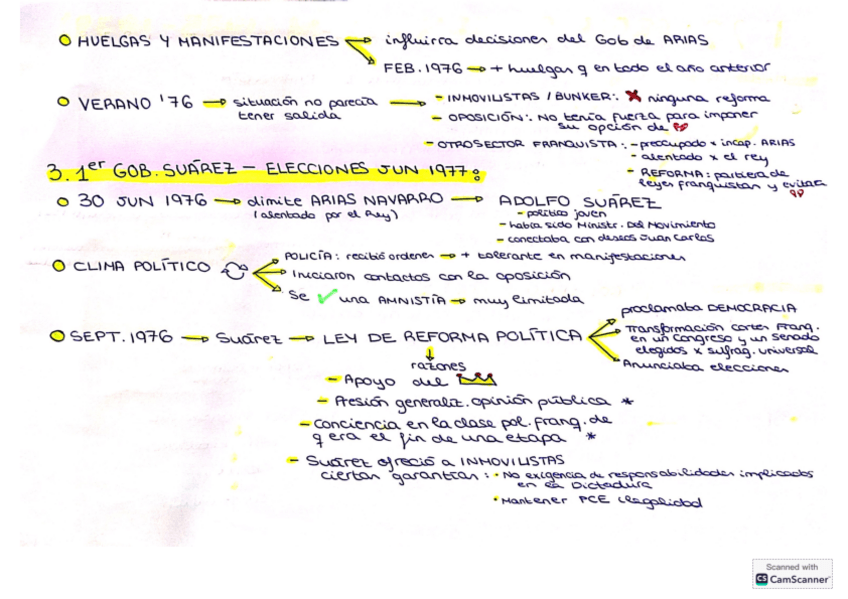 HUELGAS Y MANIFESTACIONES → influirca decisiones del Gob de ARIAS
FEB. 1976 → + huelgas q en todo el año anterior
VERANO '76 → situación no parecía tener salida
- INMOVILISTAS / BUNKER: ✗ ninguna reforma
- OPOSICIÓN: No tenía fuerza para imponer
su opción de
- OTRO SECTOR FRANQUISTA: - preocupado x incap. ARIAS
- alentado x el rey
- REFORMA: partiera de
leyes franquistas y evitara
3. 1er GOB. SUÁREZ – ELECCIONES JUN 1977:
30 JUN 1976 → dimite ARIAS NAVARRO → ADOLFO SUÁREZ
(alentado por el Rey)
- político joven
- había sido Ministr. Del Movimiento
- conectaba con deseos Juan Carlos
CLIMA POLÍTICO
POLICÍA: recibió ordenes → + tolerante en manifestaciones
Iniciaron contactos con la oposición
Se ✓ una AMNISTÍA → muy limitada
SEPT. 1976 → Suárez → LEY DE REFORMA POLÍTICA
proclamaba DEMOCRACIA
Transformación cortes Franq.
en un congreso y un senado
elegidos x sufrag. universal
Anunciaba elecciones
razones
- Apoyo del
- Presión generaliz. opinión pública *
- Conciencia en la clase pol. franq. de
q era el fin de una etapa *
- Suárez ofreció a INMOVILISTAS
ciertas garantías: • No exigencia de responsabilidades implicados
en la Dictadura
• Mantener PCE ilegalidad
Scanned with
CS CamScanner